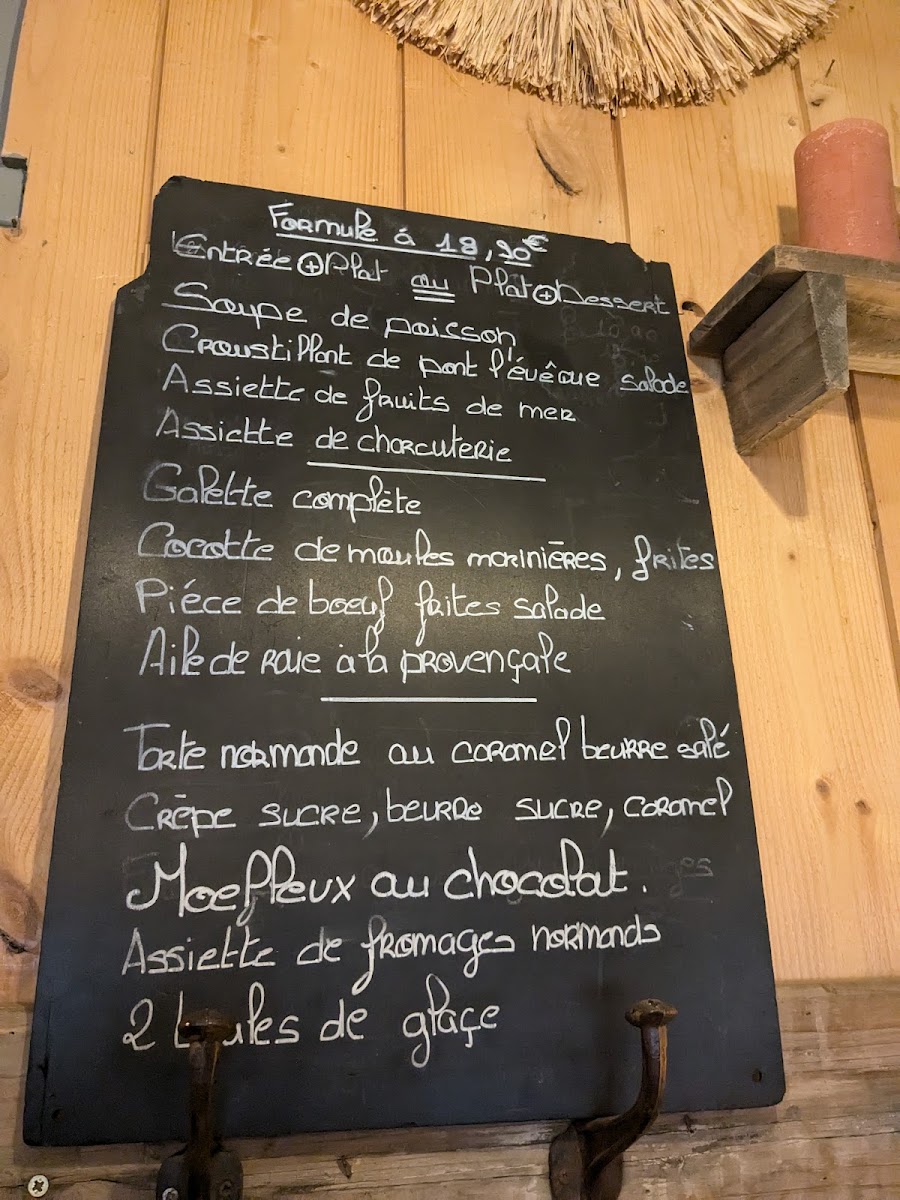 Formule à 18,90€
Entrée + Plat ou Plat + Dessert
Soupe de poisson
Croustillant de pont l'évêque salade
Assiette de fruits de mer
Assiette de charcuterie
Galette complète
Cocotte de moules marinières, frites
Piéce de boeuf frites salade
Aile de raie à la provençale
Tarte normande au caramel beurre salé
Crêpe sucre, beurre sucre, caramel
Moelleux au chocolat.
Assiette de fromages normands
2 boules de glaçe